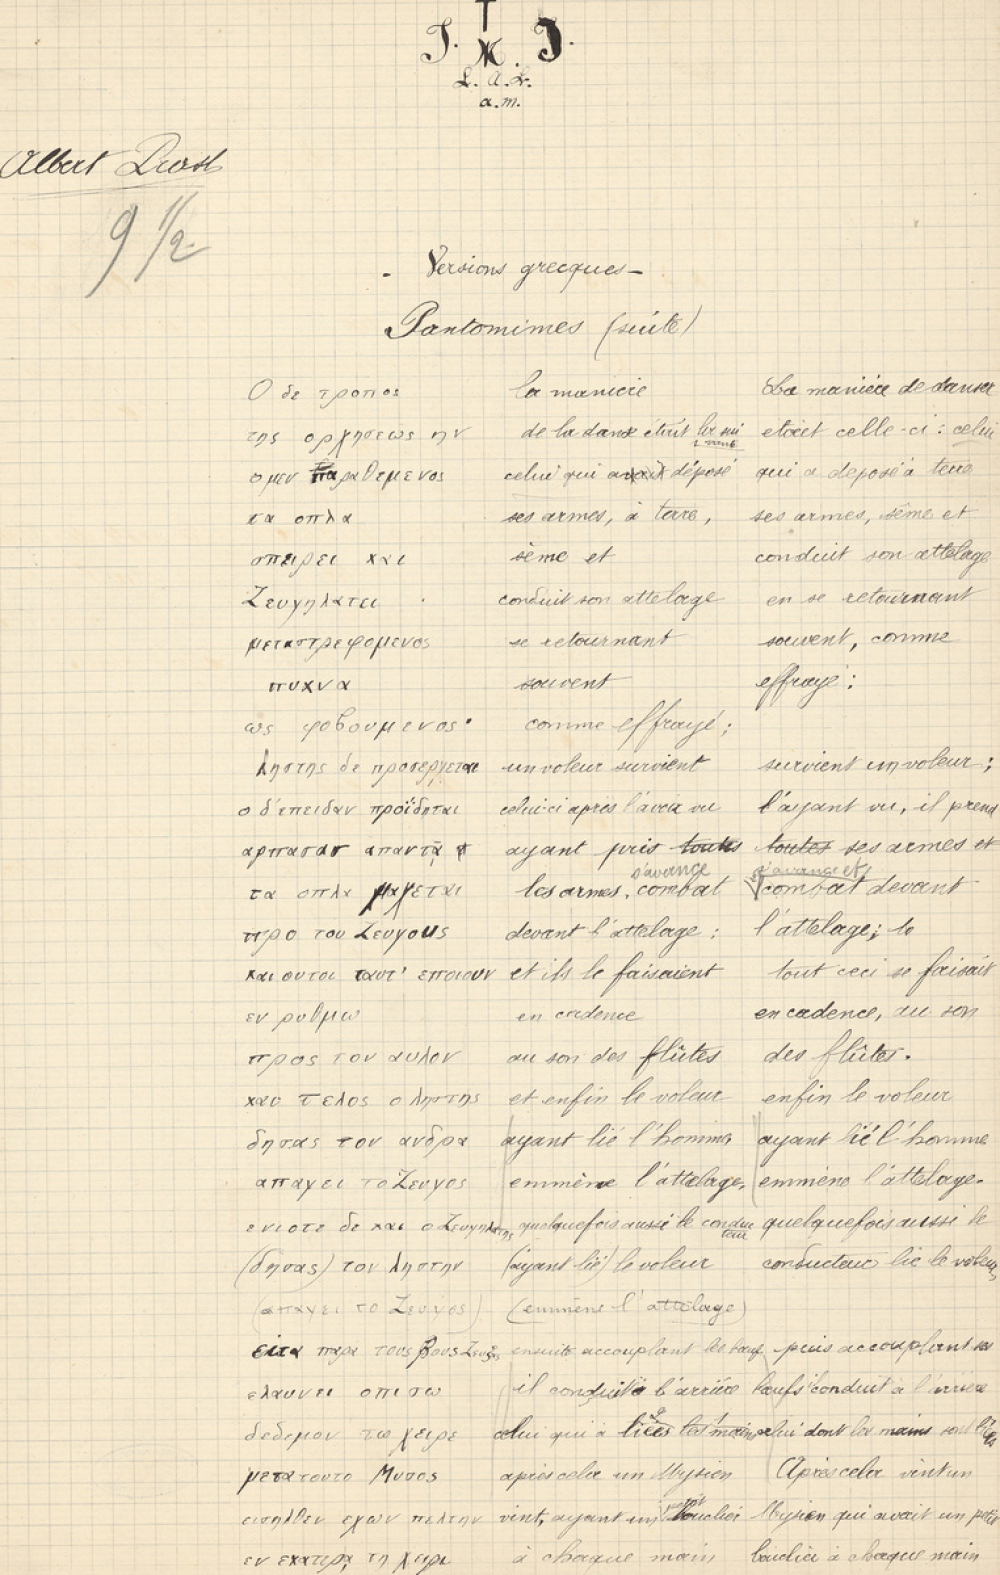 J. J.
L. a. L.
a.m.
Albert
9 1/2
- Versions grecques -
Pantomimes (suite)
Ο δε τροπος la manière La manière de danser
της ορχησεως ην de la danse était etait celle-ci : celui
ο μεν παραθεμενος celui qui avait déposé qui a deposé à terre
τα οπλα ses armes, à terre, ses armes, sème et
σπειρει και sème et conduit son attelage
Ζευγηλατει conduit son attelage en se retournant
μεταστρεφομενος se retournant souvent, comme
πυκνα souvent effrayé :
ως φοβουμενος· comme effrayé ;
ληστης δε προσερχεται un voleur survient survient un voleur ;
ο δ'επειδαν προϊδηται celui-ci après l'avoir vu l'ayant vu, il prend
αρπασαν απαντα ayant pris toutes toutes ses armes et
s'avance s'avance et
τα οπλα μαχεται les armes, combat combat devant
προ του Ζευγους devant l'attelage : l'attelage ; le
και ουτοι ταυτ' εποιουν et ils le faisaient tout ceci se faisait
εν ρυθμω en cadence en cadence, au son
προς τον αυλον au son des flûtes des flûtes.
και τελος ο ληστης et enfin le voleur enfin le voleur
δησας τον ανδρα ayant lié l'homme ayant lié l'homme
απαγει το Ζευγος emmène l'attelage, emmène l'attelage.
ενιοτε δε και ο Ζευγηλατης quelquefois aussi le conducteur quelquefois aussi le
(δησας) τον ληστην (ayant lié) le voleur conducteur lie le voleur
(απαγει το Ζευγος) (emmène l'attelage)
ειτα παρα τους βους Ζευξας ensuite accouplant les bœufs puis accouplant ses
ελαυνει οπισω il conduit à l'arrière bœufs conduit à l'arrière
δεδεμον τω χειρε celui qui a liées les mains celui dont les mains sont liées
μετα τουτο Μυσος après cela un Mysien Après cela vint un
εισηλθεν εχων πελτην vint, ayant un petit bouclier Mysien qui avait un petit
εν εκατερα τη χειρι à chaque main bouclier à chaque main